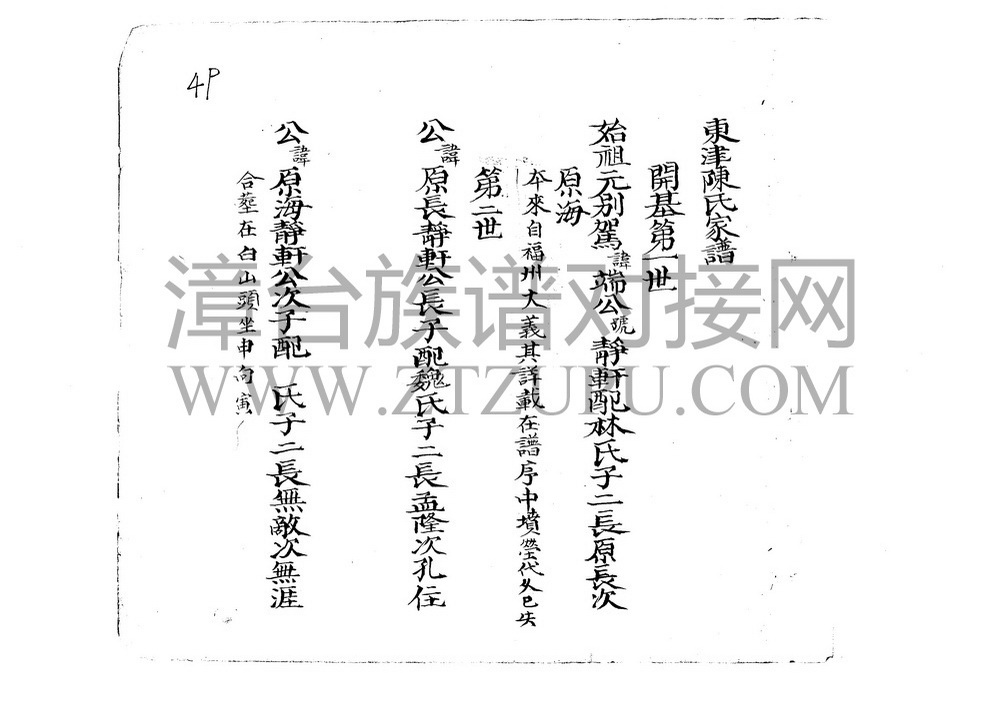 4P
東津陳氏家譜
開基第一世
始祖元別駕諱端公號靜軒配林氏子二長原長次
原海
本來自福州大義其詳載在譜序中墳塋代久已失
第二世
公諱原長靜軒公長子配魏氏子二長孟隆次孔任
公諱原海靜軒公次子配 氏子二長無敵次無涯
合塟在白山頭坐申向寅
漳台族谱对接网
WWW.ZTZUPU.COM